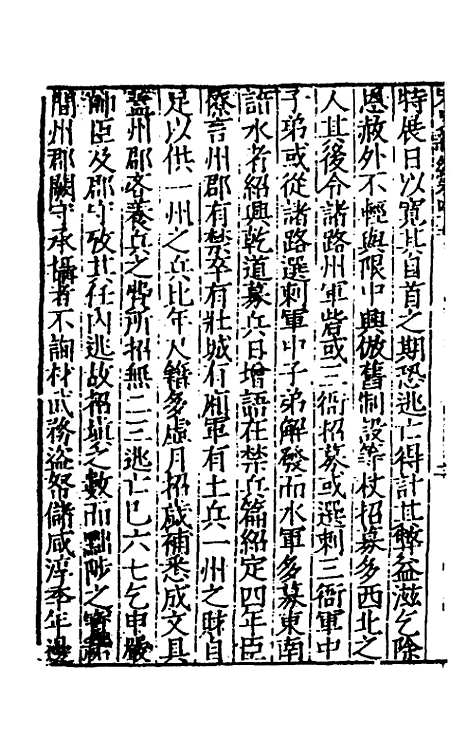 特展日以寬其自首之期恐逃亡得計其弊益滋乞除
恩赦外不輕與限中興倣舊制設等杖招募多西北之
人其後令諸路州軍砦或三衙招募或選刺三衙軍中
子弟或從諸路選刺軍中子弟解發而水軍多募東南
諳水者紹興乾道募兵日增語在禁兵篇紹定四年臣
僚言州郡有禁卒有壯城有厢軍有土兵一州之財自
足以供一州之兵比年人籍多虛月招歲補悉成文具
蓋州郡吝養兵之費所招無二三逃亡已六七乞申嚴
帥臣及郡守攷其任内逃故招塡之數而黜陟之
間州郡闕守承攝者不詢材武務盗帑儲咸淳季年邊